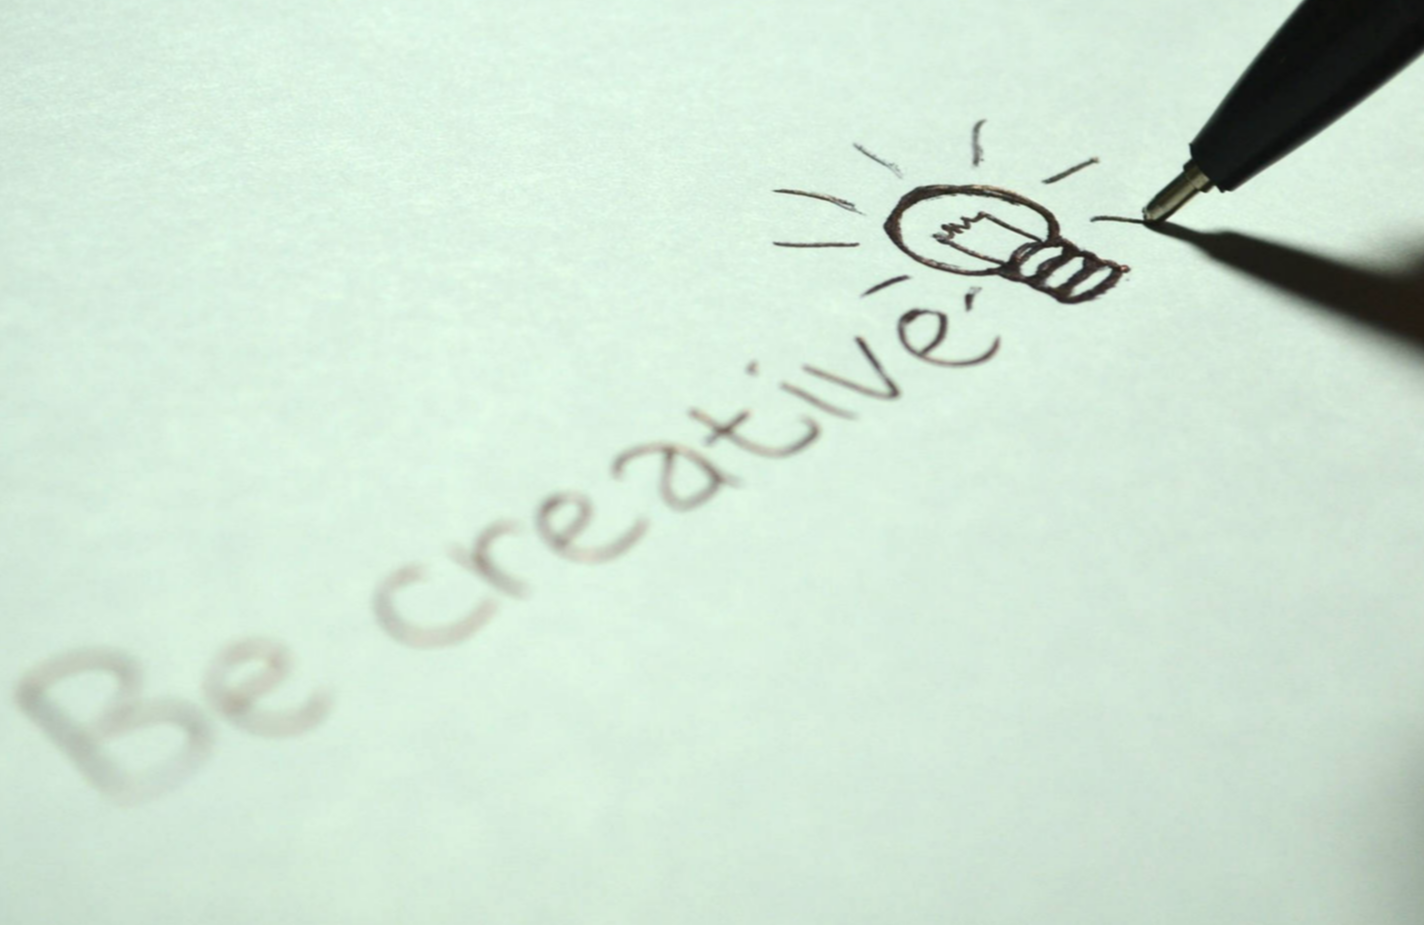 Be creative